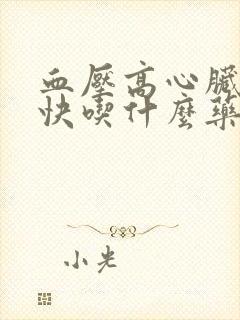 血壓高心臟
快喫什麼藥
小光